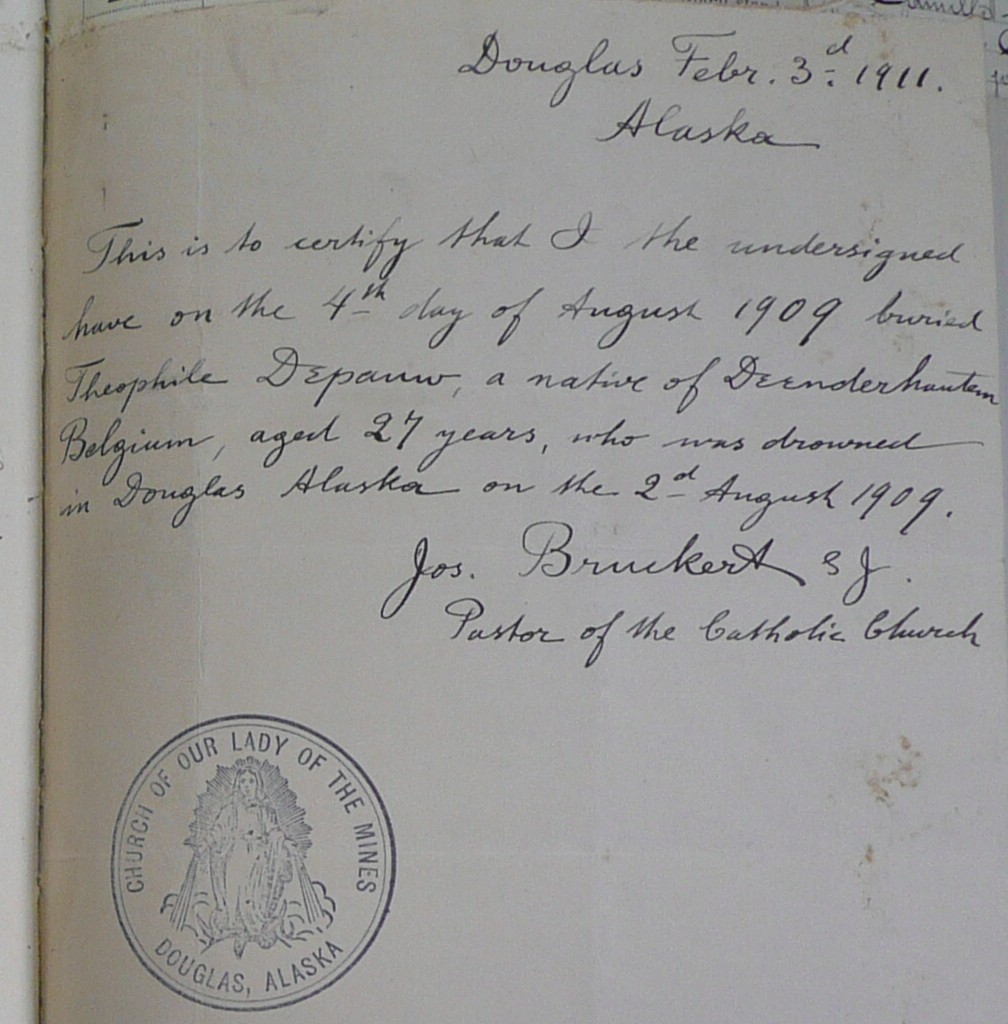 Douglas Febr. 3d. 1911.
Alaska
This is to certify that I the undersigned
have on the 4th day of August 1909 buried
Theophile Depauw, a native of Deenderhautem
Belgium, aged 27 years, who was drowned
in Douglas Alaska on the 2d August 1909.
Jos. Bruckert S J.
Pastor of the Catholic Church
CHURCH OF OUR LADY OF THE MINES
DOUGLAS, ALASKA